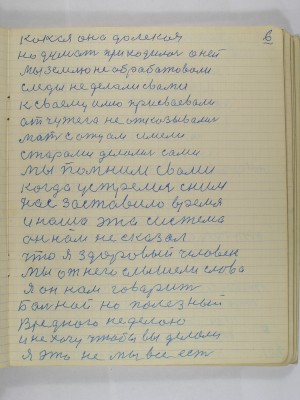 6
какая она далекая
но думат приходилос о ней
мы землю не обрабатовали
следы не делали свами
к своему имю присваевали
от чужега не отказывалис
мат с отцам имели
старалис делали сами
мы помним свами
когда устремил с ним
нас заставило время
и наша эта система
он нам не сказал
что я здоровый человек
мы от него слышели слова
я он нам говарит
Болной но полезный
Вредного не делаю
и не хочу чтобы вы делали
Я это не мы все ест